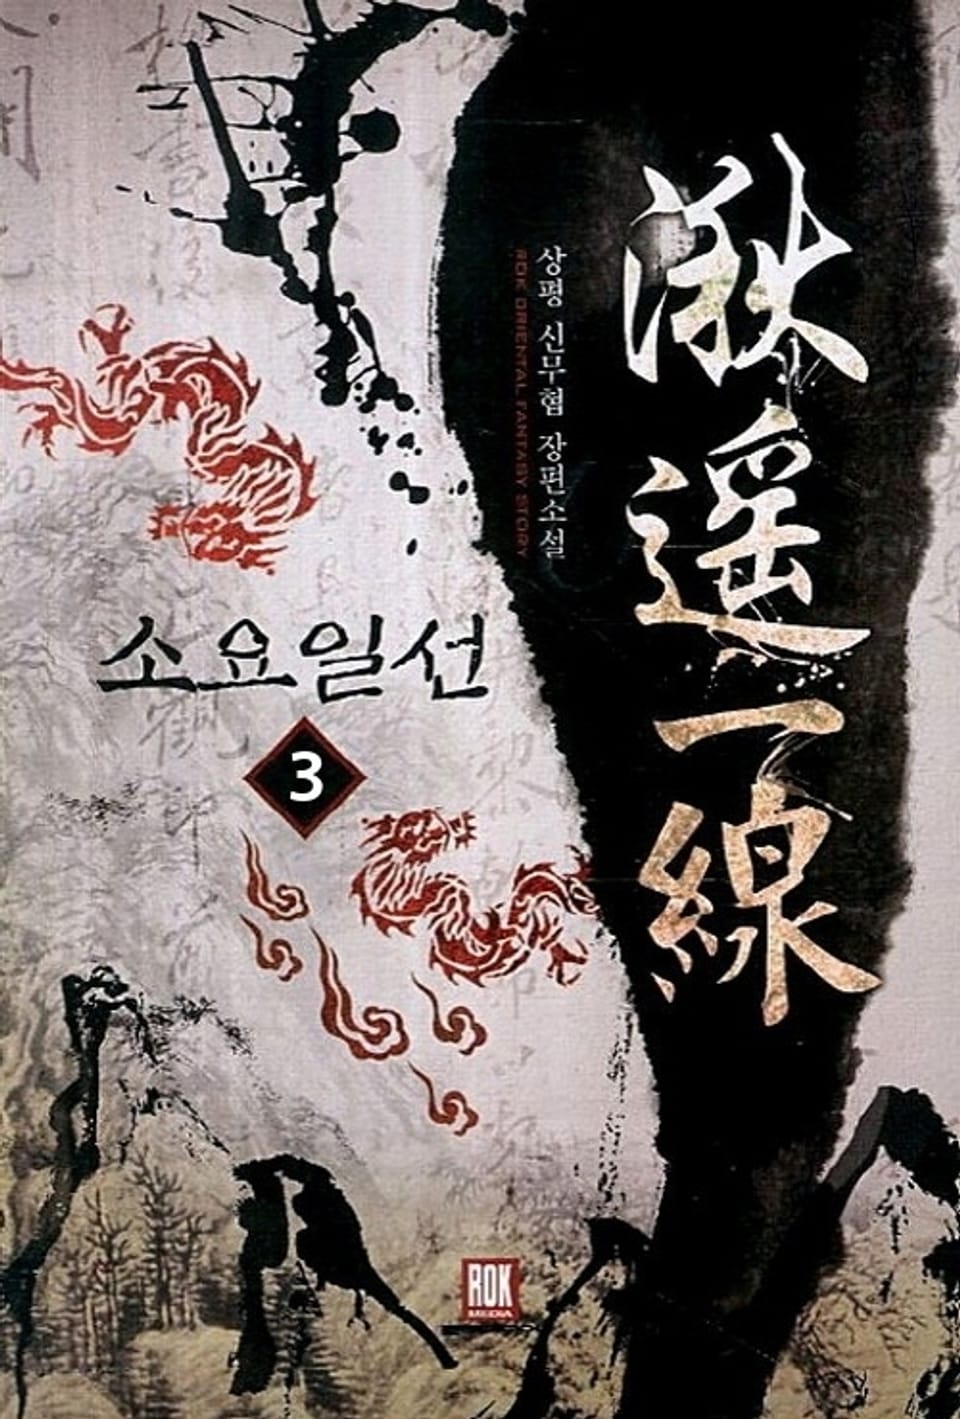 遙
一
線
상평 신무협 장편소설
ROK ORIENTAL FANTASY STORY
소요일선
3
ROK
MEDIA